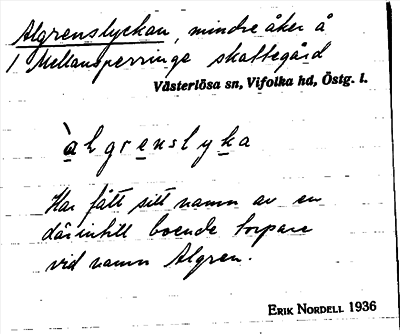 Algrenslyckan, mindre åker å
1 Mellansperringe skattegård
Västerlösa sn, Vifolka hd, Östg. l.
àlgrenslyka
Har fått sitt namn av en
därintill boende torpare
vid namn Algren.
ERIK NORDELL 1936